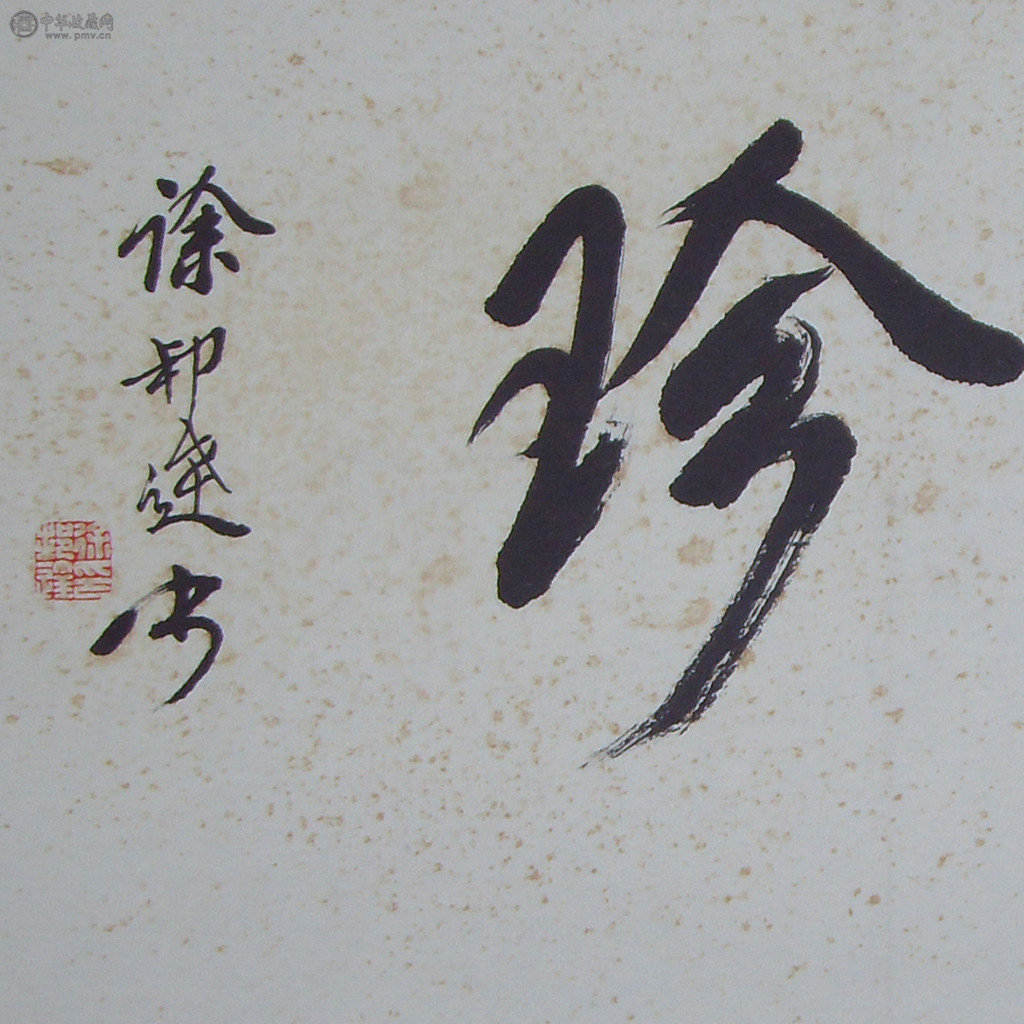 珍
徐邦達书
中华收藏网
www.pmv.cn